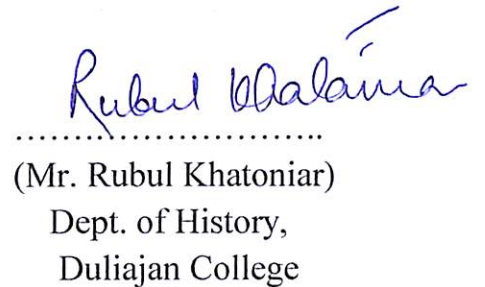 Rubul Khatoniar
..............................
(Mr. Rubul Khatoniar)
Dept. of History,
Duliajan College